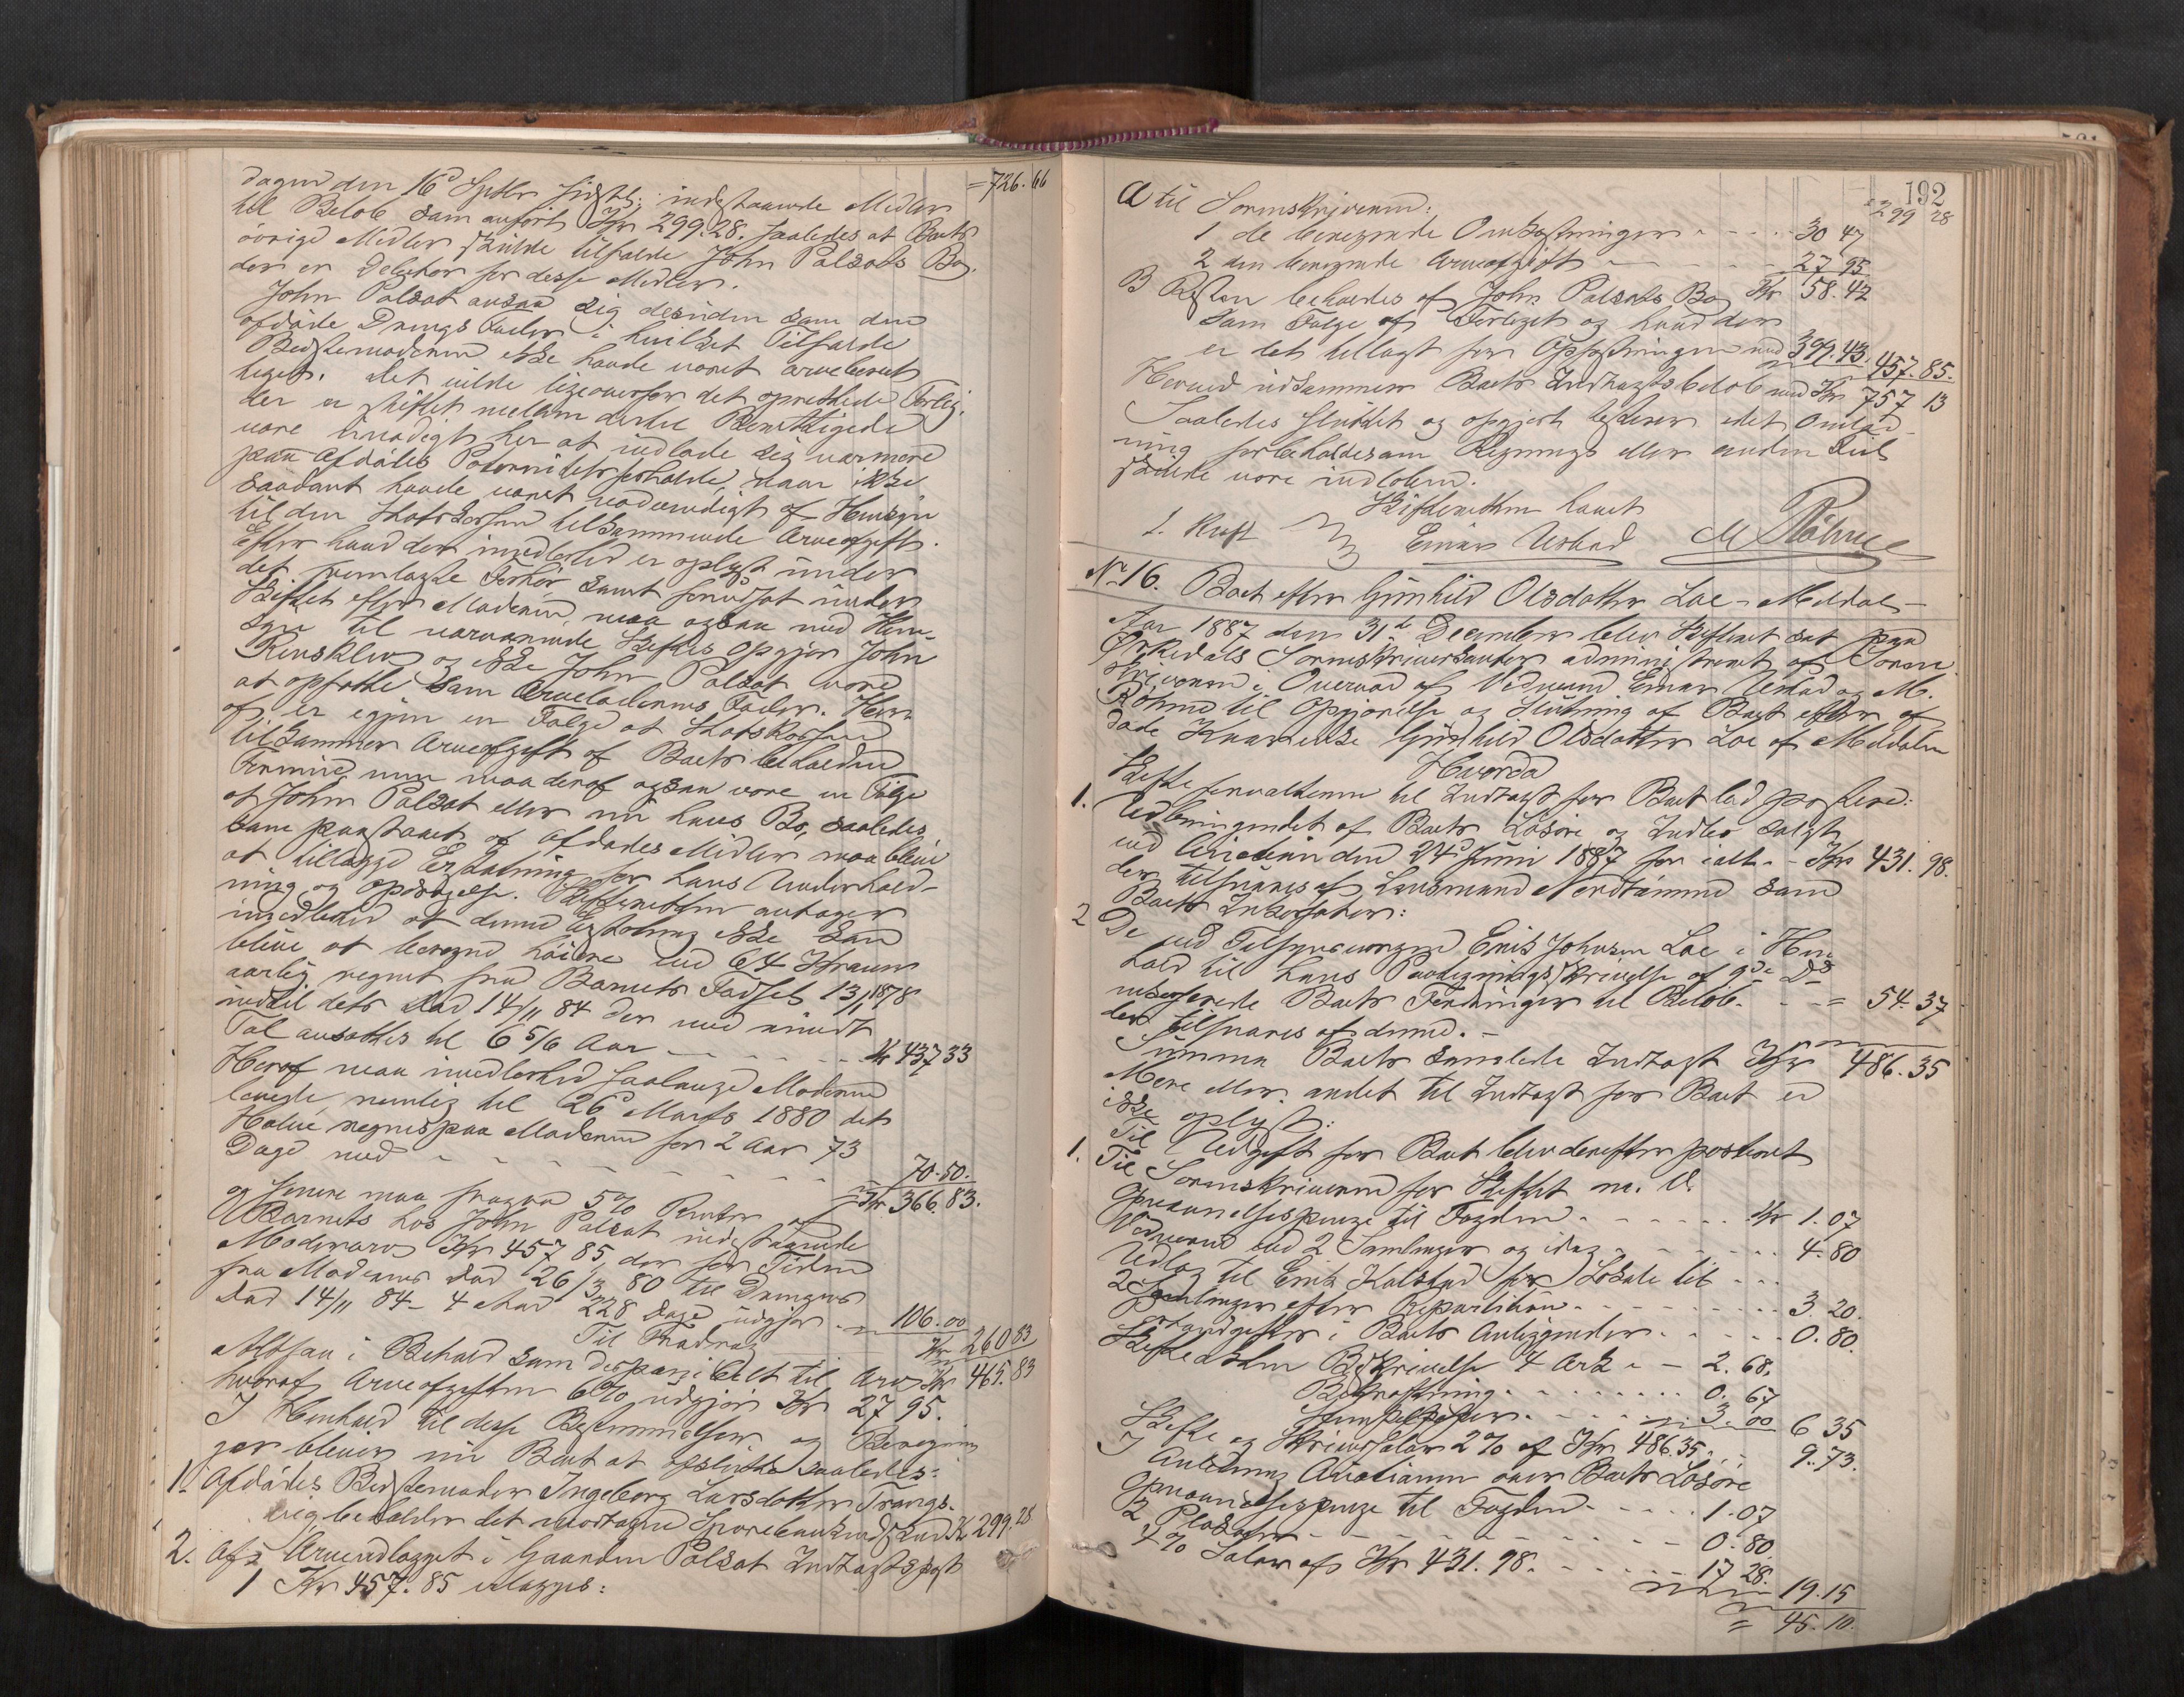 dagen den 16d Septbr sidstl: indestaaende Midler = 726.66
til Beløb som anført Kr 299.28, saaledes at Boets
øvrige Midler skulde tilfalde John Polsæts Bo,
der er Debitor for disse Midler.
John Polsæt ansaa sig desuden som den
afdøde Drengs Fader i hvilket Tilfælde
Bedstemoderen ikke havde været arveberet
tiget. Det vilde ligeoverfor det oprettede Forlig,
der er skiftet mellem dertil Berettigede
være unødigt her at indlade sig nærmere
paa Afdødes Paternitetsforholde, naar ikke
saadant havde været nødvendigt af Hensyn
til den Statskassen tilkommende Arveafgift.
Efter hvad der imidlertid er oplyst under
det fremlagte Forhør samt forudsat under
Skiftet efter Moderen, maa ogsaa med Hen-
syn til nærværende Skiftes Opgjør John
Rensklev og ikke John Polsæt være
at opfatte som Arveladerens Fader. Her
af er igjen en Følge at Statskassen
tilkommer Arveafgift af Boets beholdne
Formue, men maa deraf ogsaa være en Følge
at John Polsæt eller nu hans Bo, saaledes
som paastaaet af afdødes Midler maa blive
at tillægge Erstatning for hans Underhold-
ning og Opdragelse. Skifteretten antager
imidlertid at denne Erstatning ikke kan
blive at beregne høiere end 64 Kroner
aarlig regnet fra Barnets Fødsel 13/1 1878
indtil dets Død 14/11 84 der med rundt
Tal ansættes til 6 5/6 Aar - - - - Kr 437 33
Heraf maa imidlertid saalænge Moderen
levede, nemlig til 26d Marts 1880 det
Halve regnes paa Moderen for 2 Aar 73
Dage med - - - - - - - 70.50.
Kr. 366.83.
og senere maa fragaa 5% Renter af
Barnets hos John Polsæt indestaaende
Mødrearv Kr 457 85, der for Tiden
fra Moderens Død 26/3 80 til Drengens
Død 14/11 84 - 4 Aar 228 Dage udgjør - 106.00
Til Fradrag - Kr 260 83
Altsaa i Behold som despangibelt til Arv Kr 465.83
hvoraf Arveafgiften 6% udgjør Kr 27 95.
I Henhold til disse Bestemmelser og Beregnin
ger bliver nu Boet at opslutte saaledes:
1. Afdødes Bedstemoder Ingeborg Larsdatter Trangs-
beholder det modtagne Sparebankindskud K 299.28
2. Af Arveudlægget i Gaarden Polsæt Indtægtspost
1 Kr 457.85 udlægges:
192
299 28
A til Sorenskriveren:
1 de beregnede Omkostninger - - - 30 47
2 den beregnede Arveafgift - - - 27 95
Kr 58.42
B Resten beholdes af John Polsæts Bo
som Følge af Forliget og hvad der
er det tillagt for Opfostringen med 399.43. 457.85.
Herved udkommer Boets Indtægtsbeløb med Kr 757 13
Saaledes sluttet og opgjort dekreteres idet Omlød
ning forbeholdes om Regnings eller anden Feil
skulde være indløben.
Skifteretten hævet
Einar Uskad M Røhme
No 16. Boet efter Gunhild Olsdatter Loe - Meldal -
Aar 1887 den 31te December blev Skifteret sat paa
Ørkedals Sorenskriverkontor administreret af Soren
skriveren i Overvær af Vidnerne Einar Uskad og M.
Røhme til Opgjørelse og Slutning af Boet efter af
døde Kaarenke Gunhild Olsdatter Loe af Meldalen
Hvorda
Skifteforvalteren til Indtægt for Boet lod postere:
1. Udbringendet af Boets Løsøre og Indbo solgt
ved Auction den 24d Juni 1887 for ialt - Kr 431.98.
der tilsvares af Lensmand Nerdrumme som
Boets Inkassator:
2 De ved Tilsynsværgen Erik Johnsen Loe i Hen-
hold til hans Paategningsskrivelse af 9de Ds
inkasserede Boets Fordringer til Beløb - - = 54 37
der tilsvares af denne. -
Summa Boets samlede Indtægt Kr 486.35
Mere eller andet til Indtægt for Boet er
ikke oplyst:
Til Udgift for Boet blev derefter posteret
1. Til Sorenskriveren for Skiftet m. V.
Opnævnelsespenge til Fogden - - - - Kr 1.07
Vidnerne ved 2 Samlinger og idag - - - 4.80
Udlæg til Erik Kalstad for Lokale til - - -
2 Samlinger efter Repartition - - - - 3.20.
Portoudgifter i Boets Anliggender - - - - 0.80.
Skifteakten Beskrivelse 4 Ark - - 2.68.
Bekræftning - - - - - 0. 67
Stempelpapir - - - 3.00 6 35
Skifte og Skriversalær 2% af Kr 486.35 - - 9.73.
I Anledning Auctionen over Boets Løsøre
Opnævnelsespenge til Fogden - - - - 1.07
2 Plakater - - - - - - 0.80.
4% Salær af Kr 431.98. - - - - 17 28.
19.15
= 45.10.